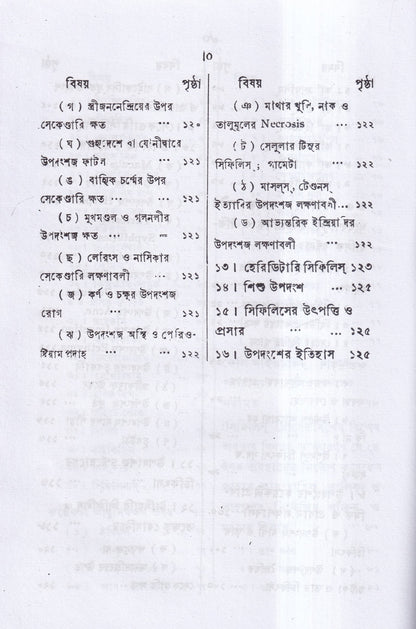 ।০
বিষয় পৃষ্ঠা
( গ ) স্ত্রীজননেন্দ্রিয়ের উপর
সেকেণ্ডারি ক্ষত ··· ১২০
( ঘ ) গুহ্যদেশে বা যোনীদ্বারে
উপদংশজ ফাটল ··· ১২১
( ঙ ) বাহ্যিক চর্ম্মের উপর
সেকেণ্ডারি ক্ষত ··· ··· ১২১
( চ ) মুখমণ্ডল ও গলনলীর
উপদংশজ ক্ষত ··· ··· ১২১
( ছ ) লেরিংস ও নাসিকার
সেকেণ্ডারি লক্ষণাবলী ··· ১২১
( জ ) কর্ণ ও চক্ষুর উপদংশজ
রোগ ··· ··· ১২১
( ঝ ) উপদংশজ অস্থি ও পেরিও-
ষ্টিয়াম প্রদাহ ··· ··· ১২২
বিষয় পৃষ্ঠা
( ঞ ) মাথার খুলি, নাক ও
তালুমূলের Necrosis ··· ১২২
( ট ) সেলুলার টিসুর
সিফিলিস্, গামেটা ··· ১২২
( ঠ ) মাসল্‌স্, টেণ্ডনস্
ইত্যাদির উপদংশজ লক্ষণাবলী... ১২২
( ড ) আভ্যন্তরিক ইন্দ্রিয়াদির
উপদংশজ লক্ষণাবলী ··· ১২২
১৩। হেরিডিটারি সিফিলিস্ ১২৩
১৪। শিশু উপদংশ ··· ১২৫
১৫। সিফিলিসের উৎপত্তি ও
প্রসার ··· ··· ১২৫
১৬। উপদংশের ইতিহাস ১২৫